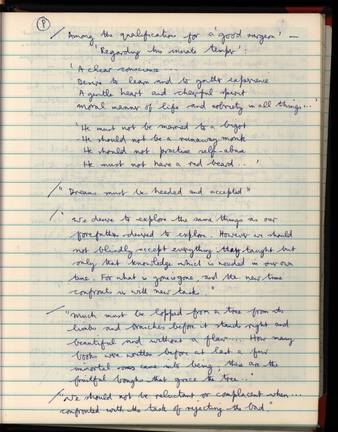 / Among the qualification for a 'good surgeon' —
'Regarding his innate temper':
'A clear conscience ...
Desire to learn and to gather experience
A gentle heart and cheerful spirit
Moral manner of life and sobriety in all things...'
'He must not be married to a bigot
He should not be a runaway monk
He should not practise self-abuse
He must not have a red beard...'
/ "Dreams must be heeded and accepted"
/ "We desire to explore the same things as our
forefathers desired to explore. However we should
not blindly accept everything they taught but
only that knowledge which is needed in our own
time. For what is gone is gone, and the new time
confronts us with new task."
/ "Much must be lopped from a tree from its
limbs and branches before it stands right and
beautiful and without a flaw... How many
books were written before at last a few
immortal ones came into being, these are the
fruitful boughs that grace the tree.."
/ "We should not be reluctant or complacent when...
confronted with the task of rejecting the bad."